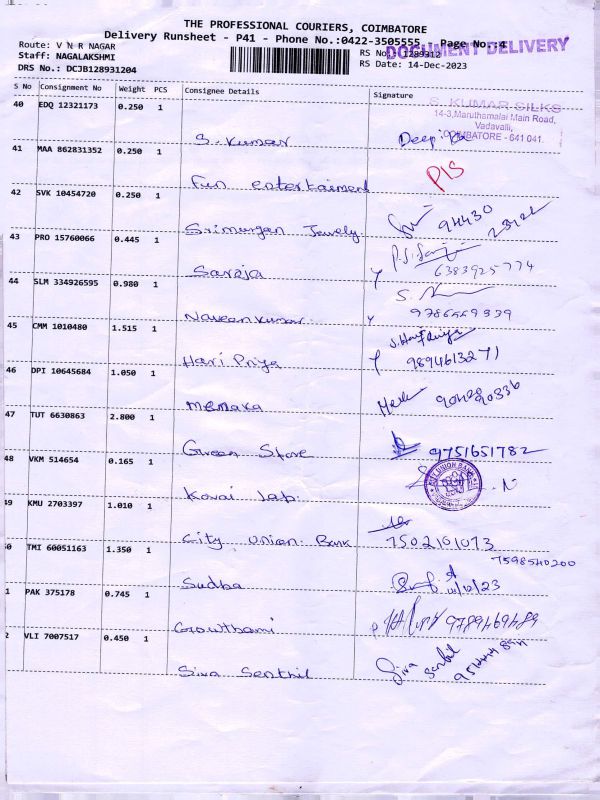 THE PROFESSIONAL COURIERS, COIMBATORE
Delivery Runsheet - P41 - Phone No.:0422-3505555 Page No. 4
DOCUMENT DELIVERY
Route: V N R NAGAR
RS No.: 1289312
Staff: NAGALAKSHMI
RS Date: 14-Dec-2023
DRS No.: DCJB128931204
S No Consignment No Weight PCS Consignee Details Signature
40 EDQ 12321173 0.250 1
S. KUMAR SILKS
14-3, Maruthamalai Main Road,
Vadavalli,
COIMBATORE - 641 041.
S. Kumar
41 MAA 862831352 0.250 1
Fun entertaiment
PIS
42 SVK 10454720 0.250 1
Srimurgan Jewely
94430
43 PRO 15760066 0.445 1
Saroja
6383925774
44 SLM 334926595 0.980 1
Naveen Kumar
45 CMM 1010480 1.515 1
Hari Priya
9894613271
46 DPI 10645684 1.050 1
Menaka
47 TUT 6630863 2.800 1
Green Store
9751651782
48 VKM 514654 0.165 1
Kovai lab
49 KMU 2703397 1.010 1
City union Bank
7502101073
7598540200
0 TMI 60051163 1.350 1
Sudha
1 PAK 375178 0.745 1
Gowthami
9789469489
2 VLI 7007517 0.450 1
Siva Senthil
Siva